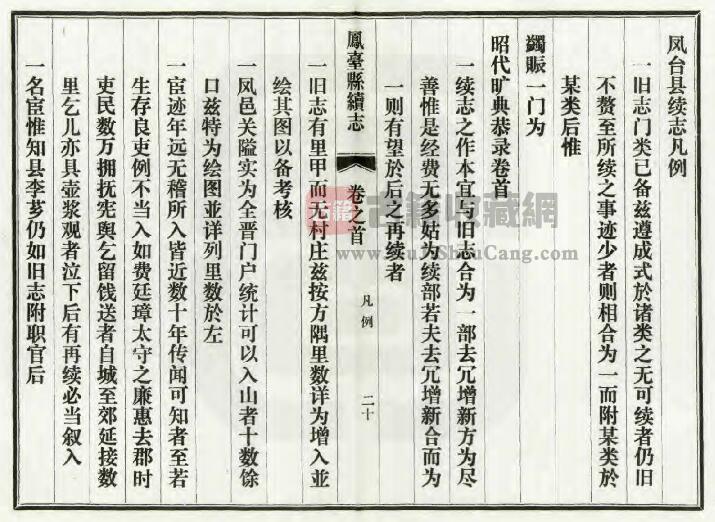 凤台县续志凡例
一旧志门类已备兹遵成式於诸类之无可续者仍旧
不赘至所续之事迹少者则相合为一而附某类於
某类后惟
蠲赈一门为
昭代旷典恭录卷首
一续志之作本宜与旧志合为一部去冗增新方为尽
善惟是经费无多姑为续部若夫去冗增新合而为
一则有望於后之再续者
鳳臺縣續志
卷之首
凡例
二十
一旧志有里甲而无村庄兹按方隅里数详为增入並
绘其图以备考核
一凤邑关隘实为全晋门户统计可以入山者十数馀
口兹特为绘图並详列里数於左
一宦迹年远无稽所入皆近数十年传闻可知者至若
生存良吏例不当入如费廷璋太守之廉惠去郡时
吏民数万拥抚宪舆乞留饯送者自城至郊延接数
里乞儿亦具壶浆观者泣下后有再续必当叙入
一名宦惟知县李芗仍如旧志附职官后
古籍
古籍收藏網
www.GuJiShouCang.com